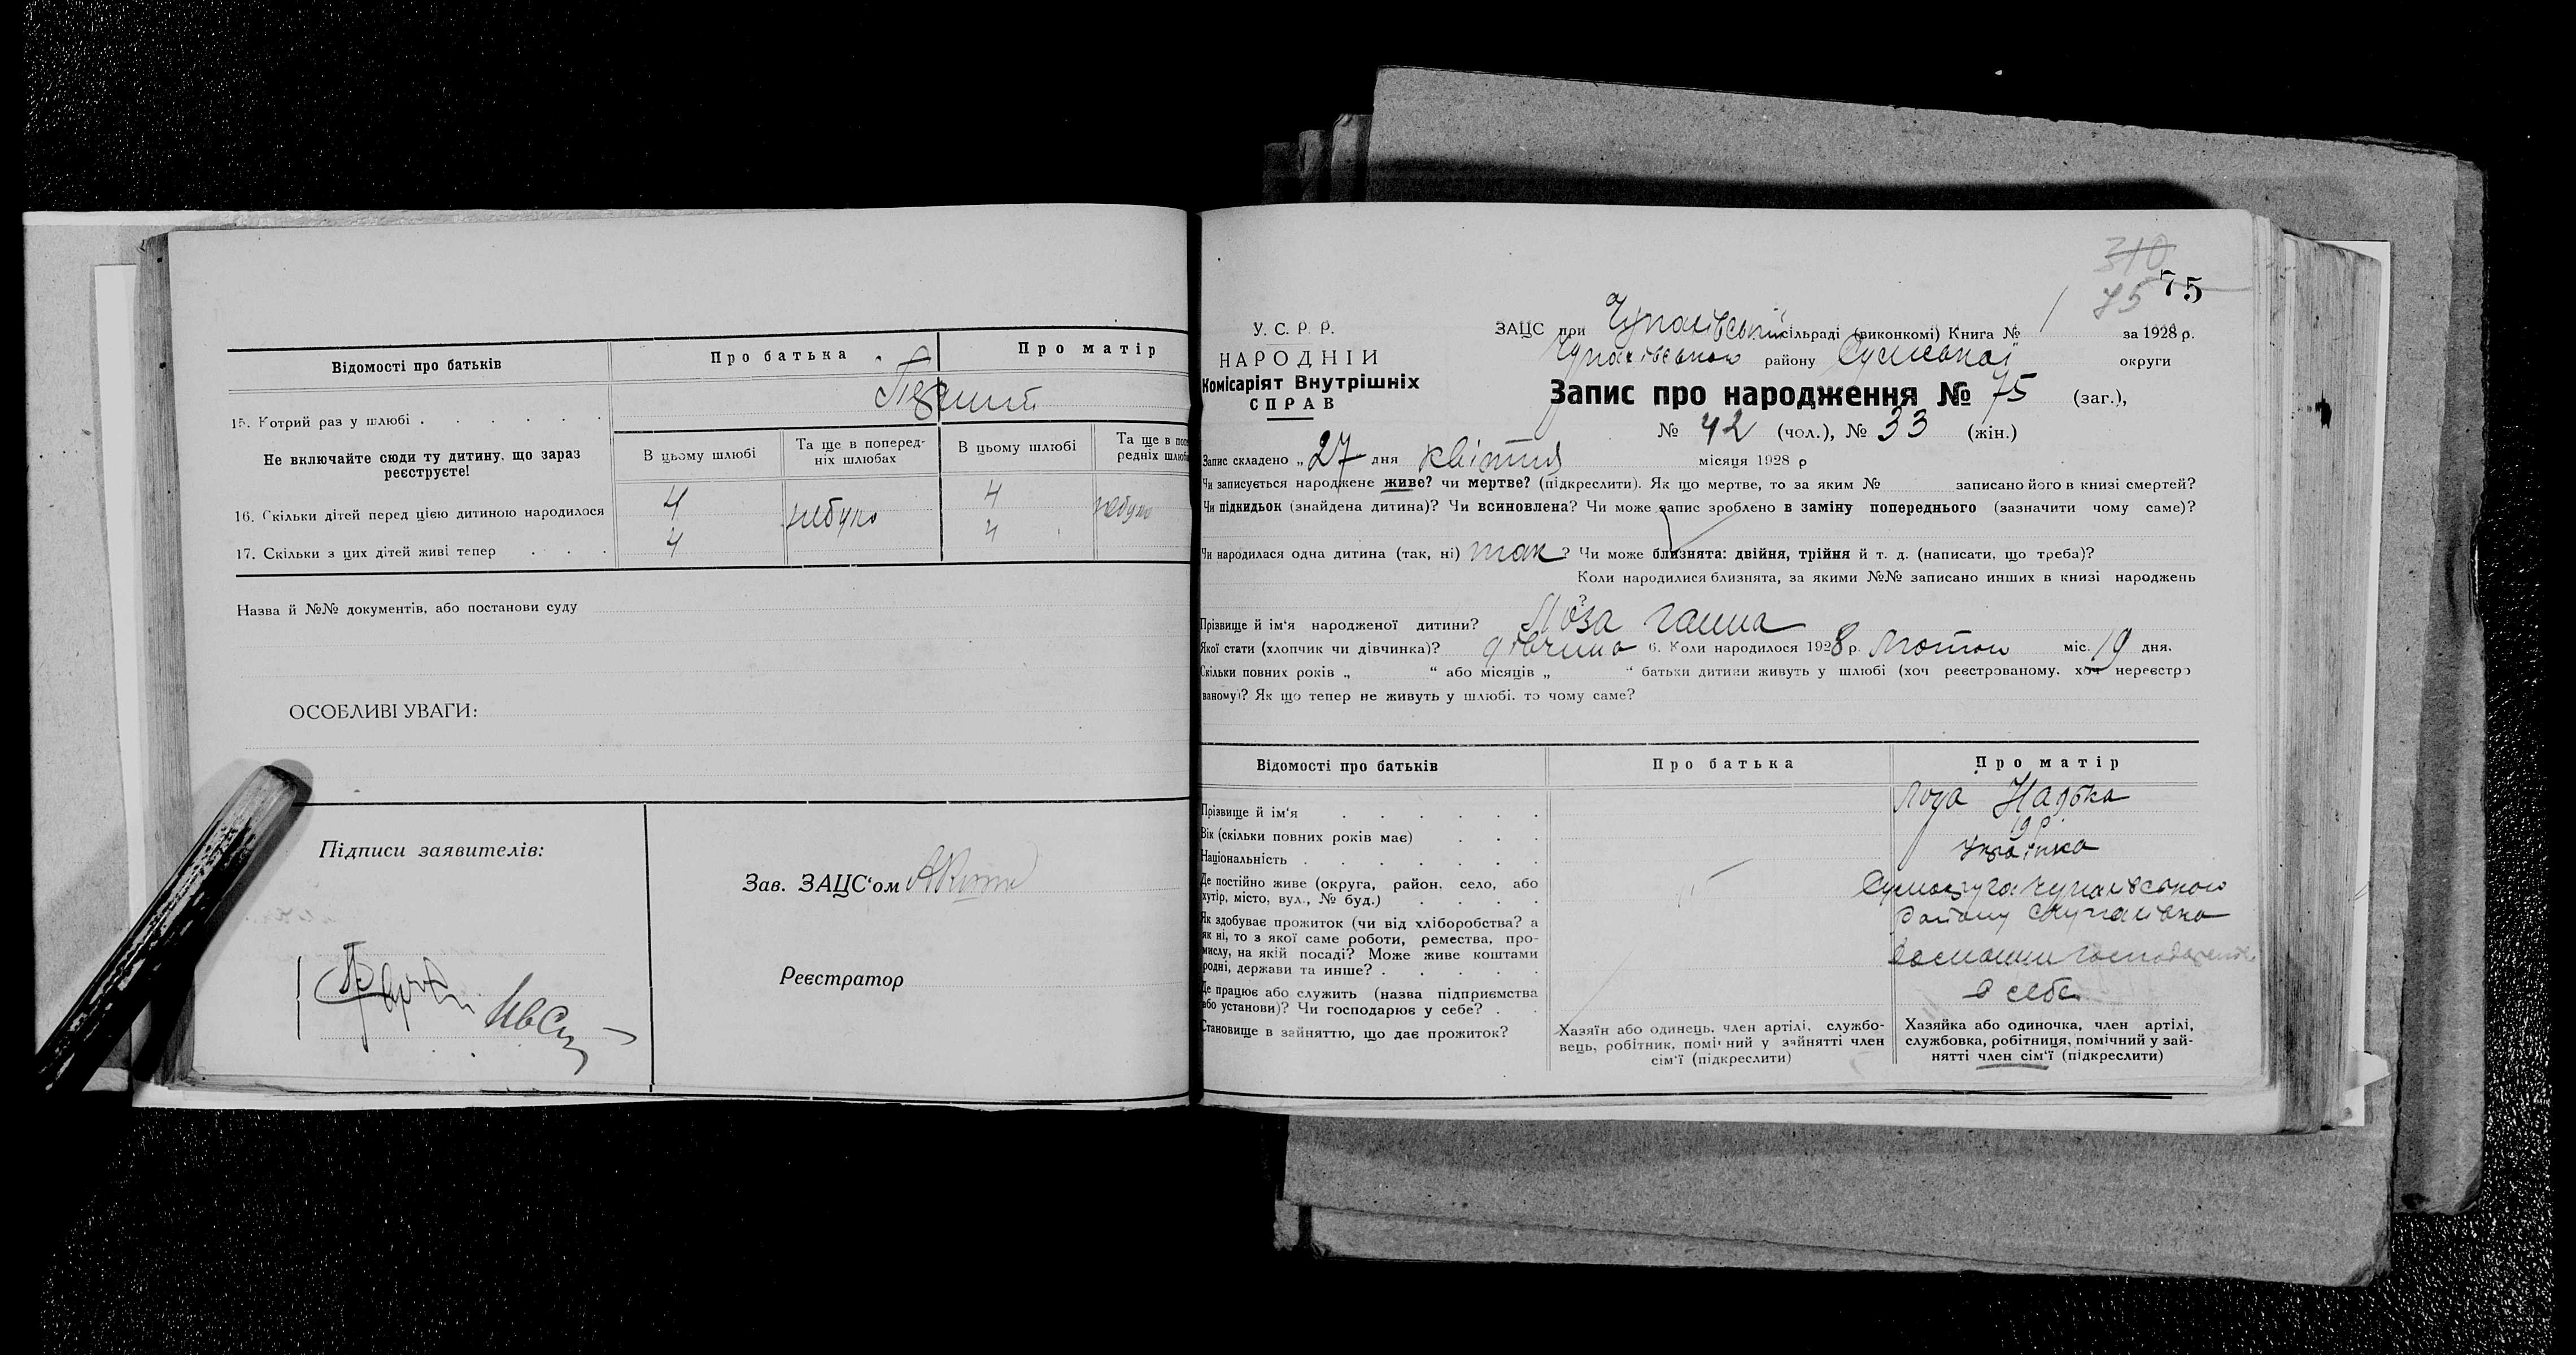 Відомості про батьків
Про батька
Про матір
15. Котрий раз у шлюбі . . . . . .
Перший
Не включайте сюди ту дитину, що зараз реєструєте!
В цьому шлюбі
Та ще в поперед-
ніх шлюбах
В цьому шлюбі
Та ще в попе
редніх шлюба
16. Скільки дітей перед цією дитиною народилося
4 небуло 4 небуло
17. Скільки з цих дітей живі тепер . . .
4 4
Назва й №№ документів, або постанови суду
ОСОБЛИВІ УВАГИ:
Підписи заявителів:
Зав. ЗАЦС'ом
Реєстратор
310
75 75
У. С. Р. Р.
НАРОДНІЙ
Комісаріят Внутрішніх
СПРАВ
ЗАЦС при Чупахівській сільраді (виконкомі) Книга № 1 за 1928 р.
Чупахівського району Сумської округи
Запис про народження № 75 (заг.),
№ 42 (чол.), № 33 (жін.)
Запис складено „27 дня квітня місяця 1928 р
Чи записується народжене живе? чи мертве? (підкреслити). Як що мертве, то за яким № записано його в книзі смертей?
Чи підкидьок (знайдена дитина)? Чи всиновлена? Чи може запис зроблено в заміну попереднього (зазначити чому саме)?
Чи народилася одна дитина (так, ні) так? Чи може близнята: двійня, трійня й т. д. (написати, що треба)?
Коли народилися близнята, за якими №№ записано инших в книзі народжень
?
Прізвище й ім'я народженої дитини? Лоза Ганна
Якої стати (хлопчик чи дівчинка)? дівчина 6. Коли народилося 1928 р. Лютого міс. 19 дня.
Скільки повних років „ “ або місяців „ “ батьки дитини живуть у шлюбі (хоч реєстрованому, хоч нереєстро
ваному)? Як що тепер не живуть у шлюбі, то чому саме?
Відомості про батьків
Про батька
Про матір
Прізвище й ім'я . . . . . .
Лоза Надька
Вік (скільки повних років має) . . .
19 р
Національність . . . . . . .
Українка
Де постійно живе (округа, район, село, або
хутір, місто, вул., № буд.) . . . .
Чупахівського
району Чупахівка
Як здобуває прожиток (чи від хліборобства? а
як ні, то з якої саме роботи, ремества, про-
мислу, на якій посаді? Може живе коштами
родні, держави та инше? . . . . .
Де працює або служить (назва підприємства
або установи)? Чи господарює у себе? . .
в себе
Становище в зайняттю, що дає прожиток?
Хазяїн або одинець, член артілі, службо-
вець, робітник, помічний у зайнятті член
сім'ї (підкреслити)
Хазяйка або одиночка, член артілі,
службовка, робітниця, помічний у зай-
нятті член сім'ї (підкреслити)